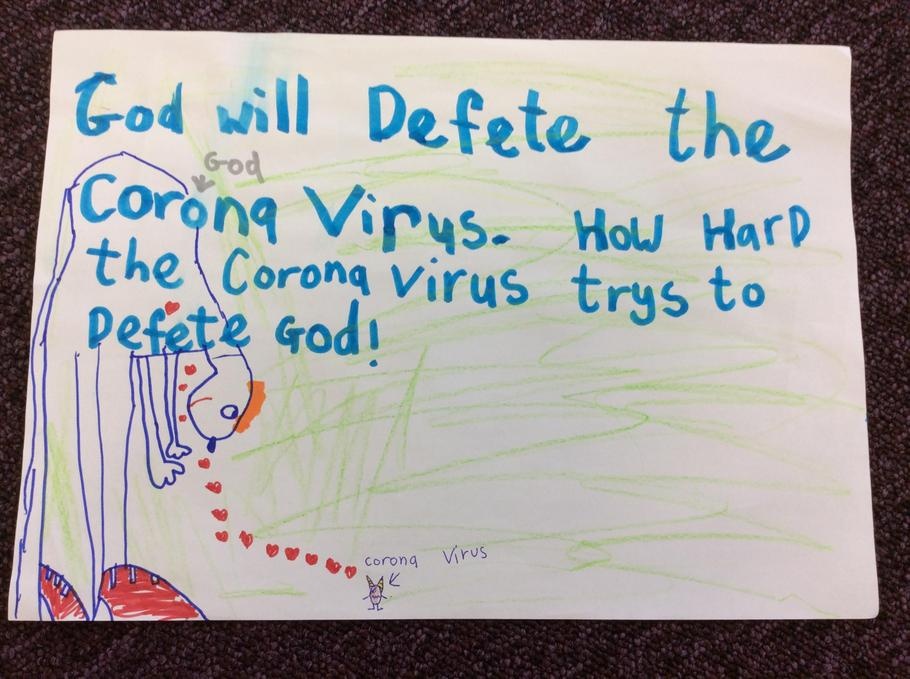 God will Defete the
God
Corona Virus. How Hard
the Corona Virus trys to
Defete God!
corona Virus